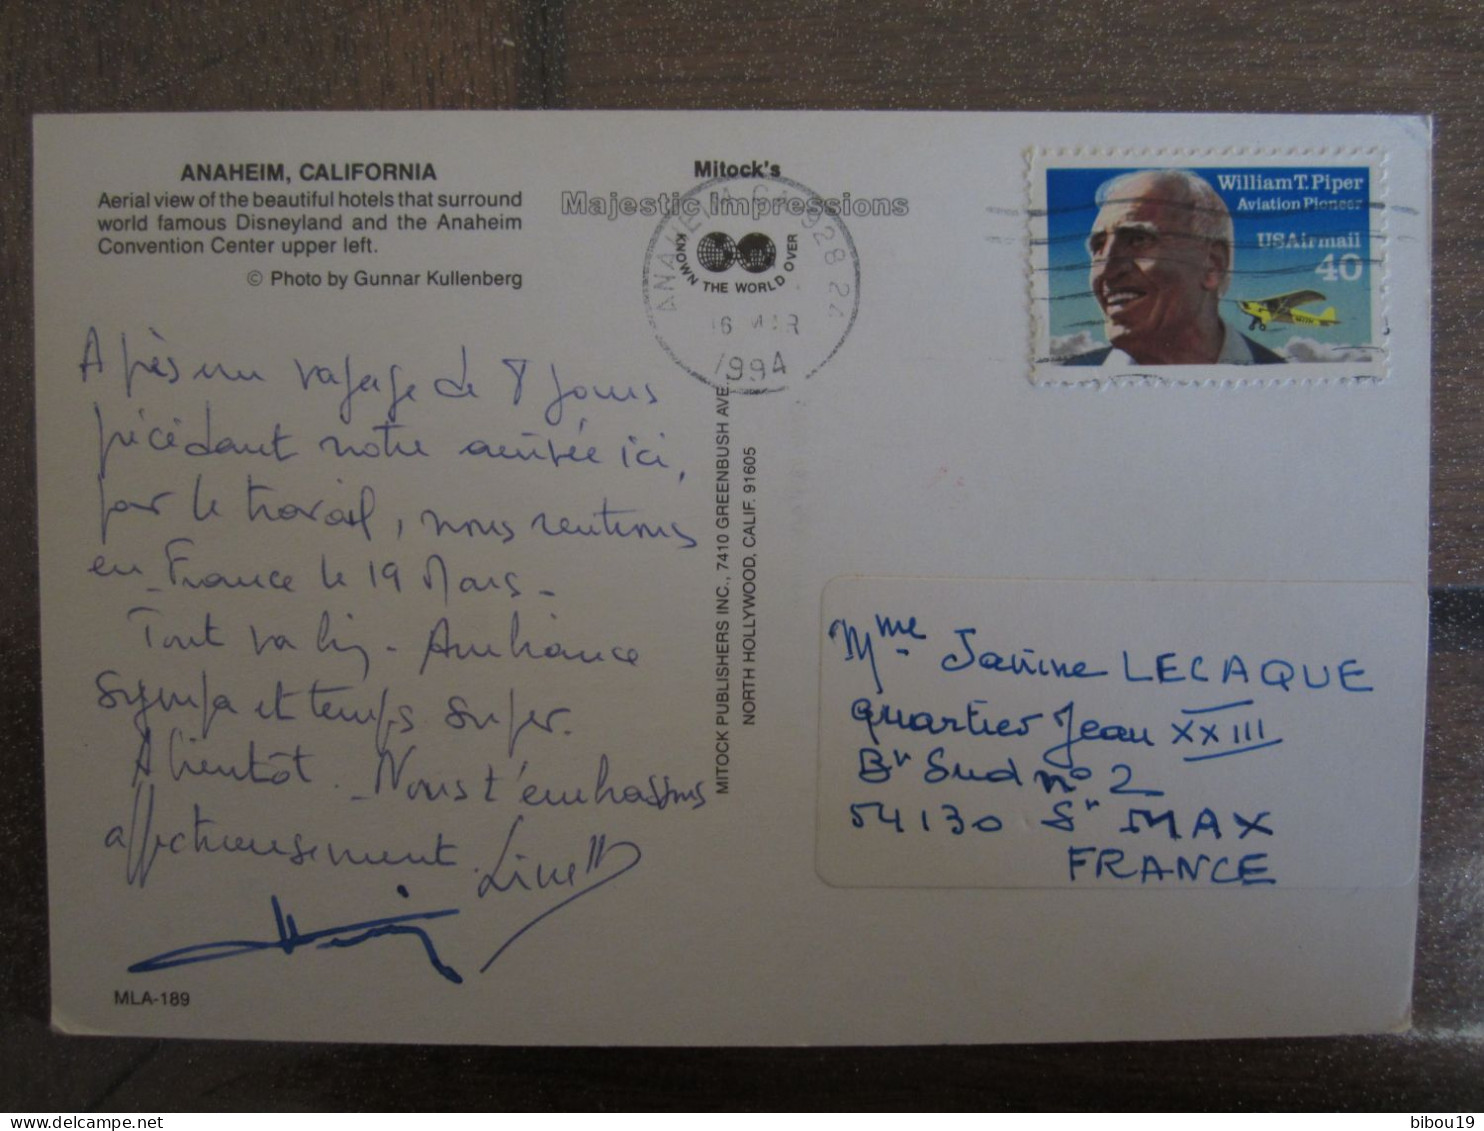 ANAHEIM, CALIFORNIA
Aerial view of the beautiful hotels that surround
world famous Disneyland and the Anaheim
Convention Center upper left.
© Photo by Gunnar Kullenberg
Après un voyage de 8 jours
précédant notre arrivée ici,
par le travail, nous rentrons
en France le 19 Mars -
Tout va bien - Ambiance
sympa et temps super.
A bientôt. Nous t'embrassons
affectueusement. Linette
MLA-189
Mitock's
Majestic Impressions
KNOWN THE WORLD OVER
ANAHEIM CA 928 22
16 MAR
1994
MITOCK PUBLISHERS INC., 7410 GREENBUSH AVE.
NORTH HOLLYWOOD, CALIF. 91605
William T. Piper
Aviation Pioneer
USAirmail
40
Mme Janine LECAQUE
quartier Jean XXIII
Bt Sud n° 2
54130 St MAX
FRANCE
bibou19